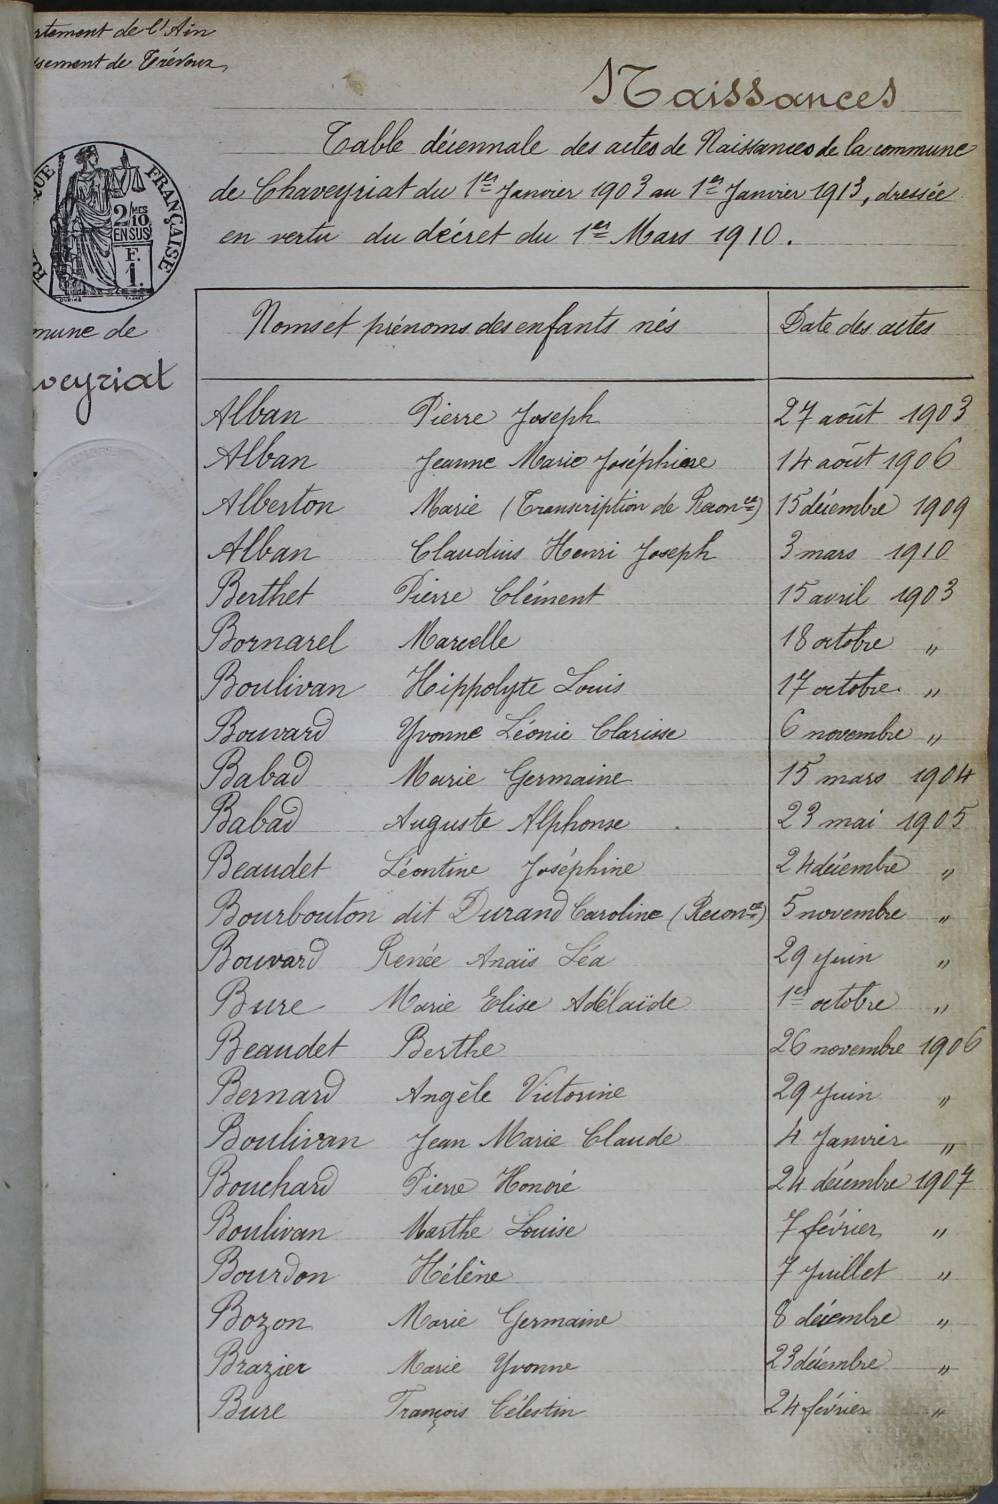 rtement de l'Ain
ssement de Trévoux
Naissances
Table décennale des actes de Naissances de la commune
de Chaveyriat du 1er Janvier 1903 au 1er Janvier 1913, dressée
en vertu du décret du 1er Mars 1910.
QUE FRANÇAISE
2/10 MES
EN SUS
F.
1.
mune de
veyriat
Noms et prénoms des enfants nés Date des actes
Alban Pierre Joseph 27 août 1903
Alban Jeanne Marie Joséphine 14 août 1906
Alberton Marie (Transcription de Reconce) 15 décembre 1909
Alban Claudius Henri Joseph 3 mars 1910
Berthet Pierre Clément 15 avril 1903
Bornarel Marcelle 18 octobre "
Boulivan Hippolyte Louis 17 octobre "
Bouvard Yvonne Léonie Clarisse 6 novembre "
Babad Marie Germaine 15 mars 1904
Babad Auguste Alphonse 23 mai 1905
Beaudet Léontine Joséphine 24 décembre "
Bourbouton dit Durand Caroline (Reconce) 5 novembre "
Bouvard Renée Anaïs Léa 29 Juin "
Bure Marie Elise Adélaïde 1er octobre "
Beaudet Berthe 26 novembre 1906
Bernard Angèle Victorine 29 Juin "
Boulivan Jean Marie Claude 4 Janvier "
Bouchard Pierre Honoré 24 décembre 1907
Boulivan Marthe Louise 7 février "
Bourdon Hélène 7 Juillet "
Bozon Marie Germaine 8 décembre "
Brazier Marie Yvonne 23 décembre "
Bure François Célestin 24 février "